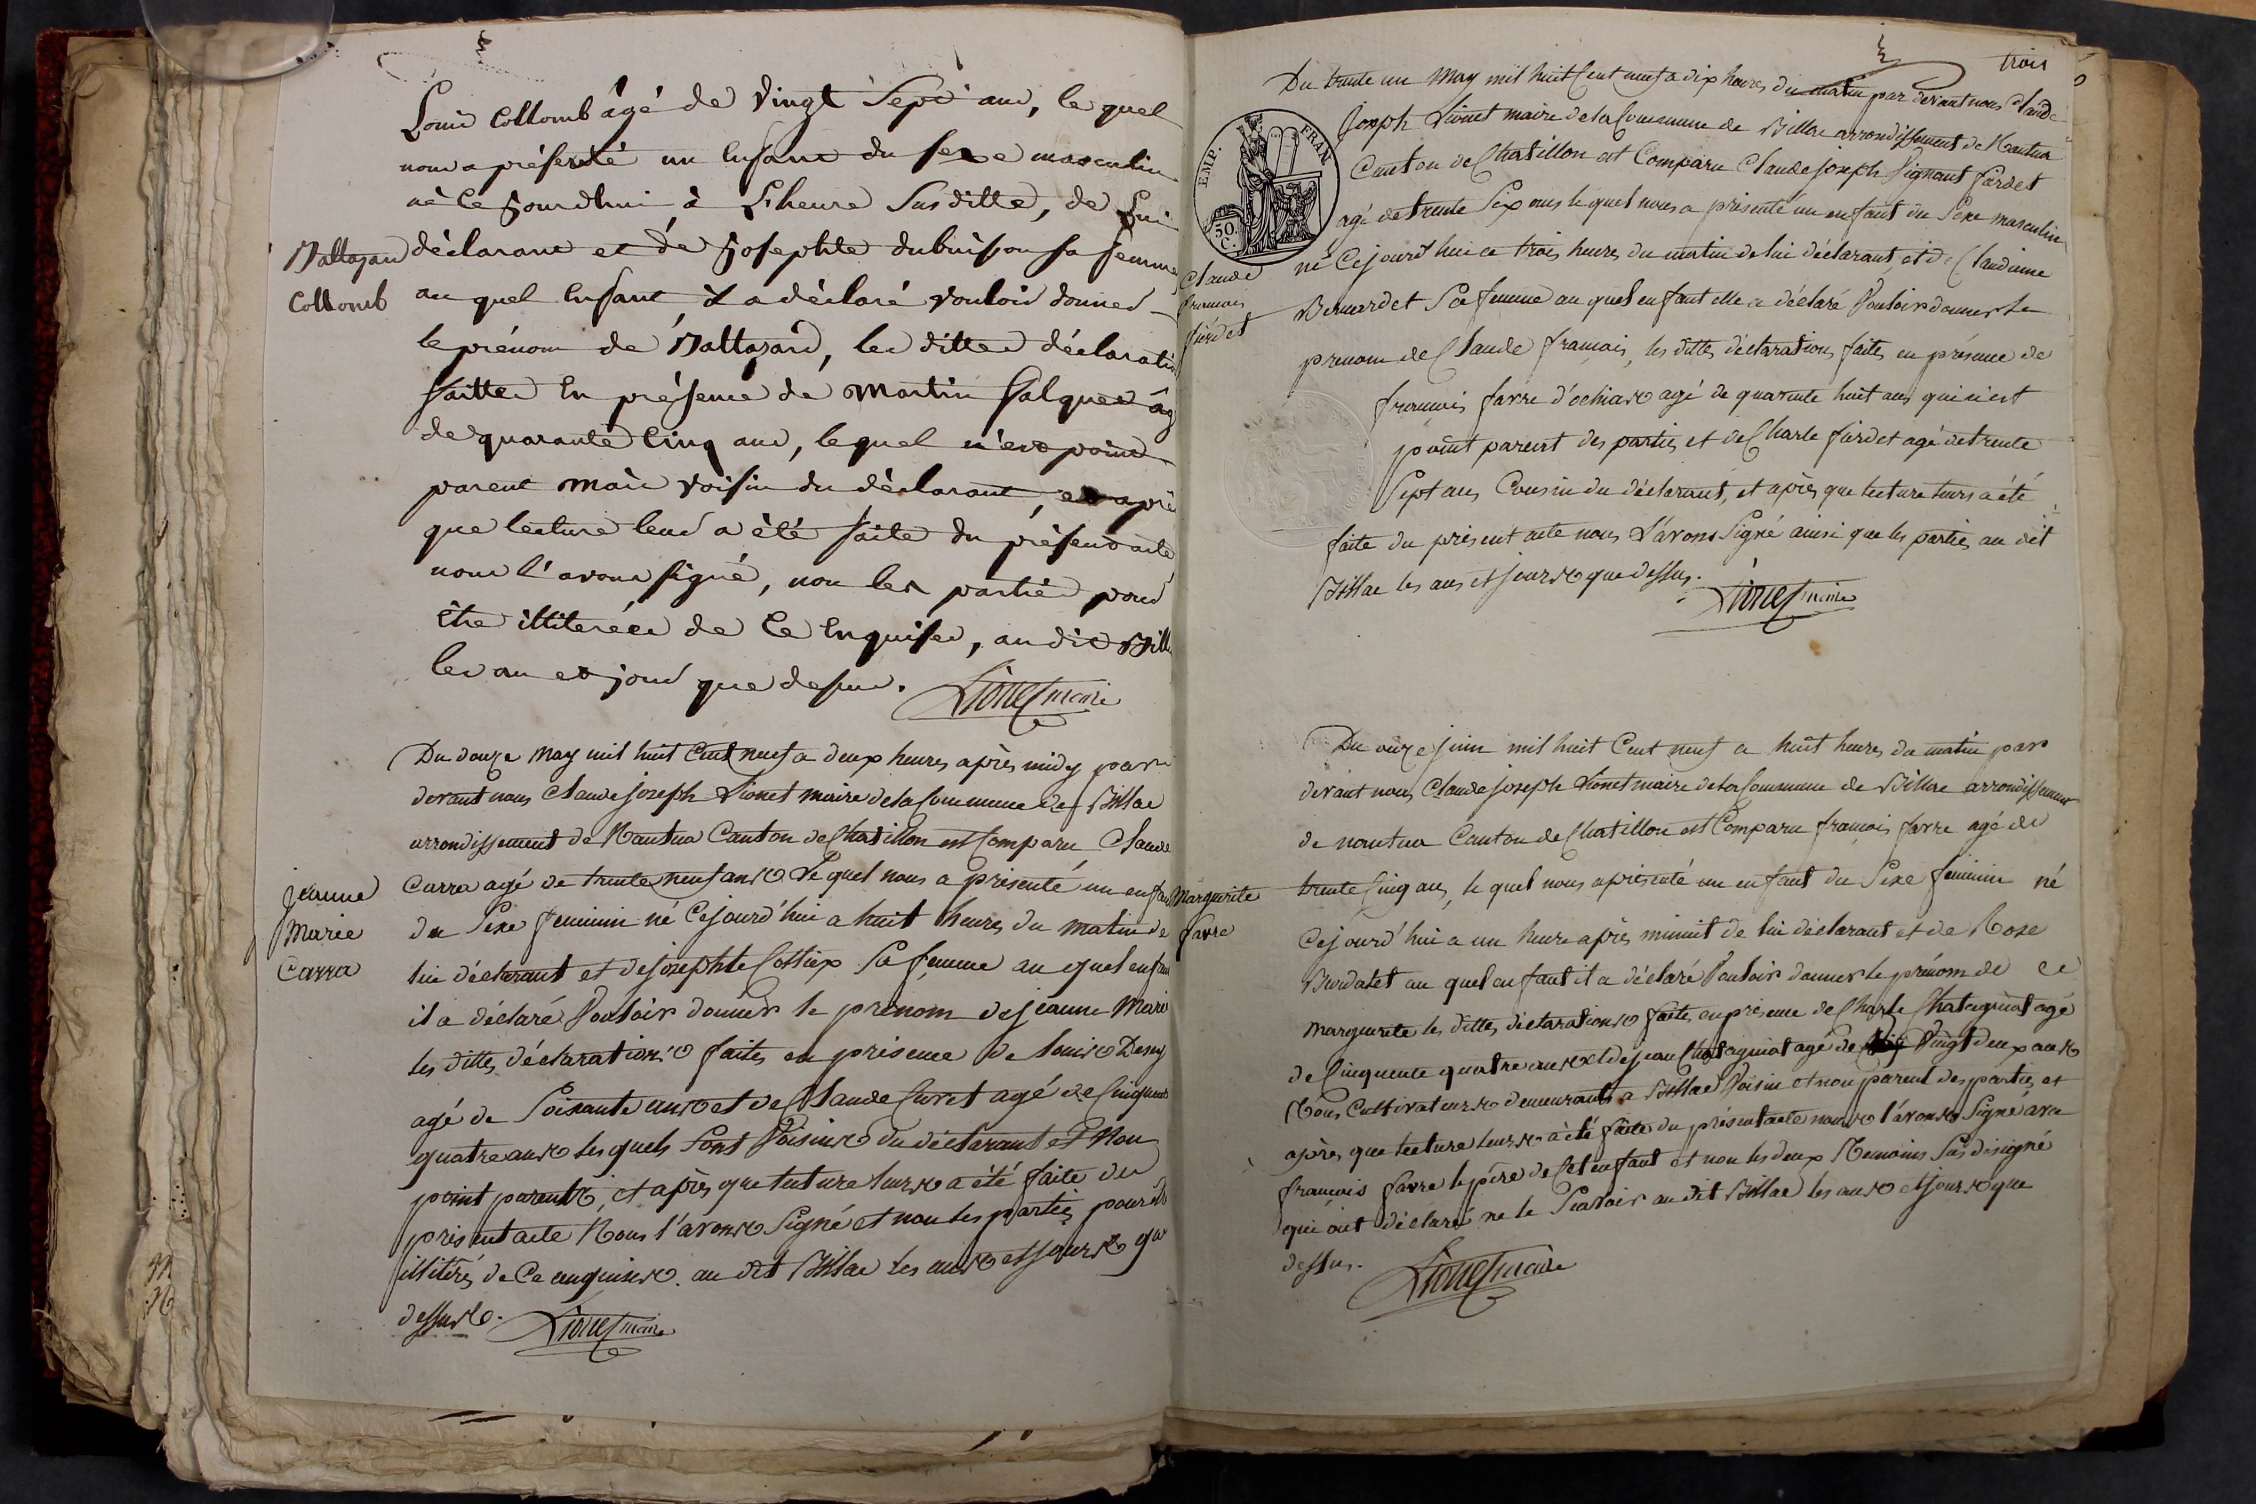 Louis Collomb âgé de vingt Sept ans, le quel
nous a présenté un Enfant du sexe masculin
né ce jourdhui à L'heure Sus ditte, de Lui
Baltazard
Collomb
déclarant et de Josephte dubuisson sa femme
au quel Enfant il a déclaré vouloir donner
le prénom de Baltazard, les dittes déclaration
faittes En présence de Martin falquet âgé
de quarante Cinq ans, lequel n'est point
parent mais voisin du déclarant, et après
que lecture leur a été faite du présent acte
nous l'avons signé, non les parties pour
être illiterées de Ce Enquises, au dit Billia
les an et jour que dessus. Lionet maire
Du douze May mil huit Cent neuf a deux heures après midy par
devant nous Claude joseph Lionet maire de la Commune de Billiac
arrondissement de Nantua Canton de Chatillon est Comparu Claude
Jeanne
Marie
Carra
Carra agé de trente neuf ans Le quel nous a présenté un enfant
du Sexe feminin né Cejourd'hui a huit heures du matin de
lui déclarant et de josephte Collier Sa femme au quel enfant
il a déclaré Vouloir donner le prénom de jeanne Marie
les dittes déclarations faites en présence de Louis Demy
agé de Soixante ans et de Claude Curet agé de Cinquante
quatre ans les quels Sont Voisins du déclarant et Non
point parents, et après que lecture leurs a été faite du
présent acte Nous l'avons Signé et non les parties pour être
illitérés de Ce enquises. au dit Billiac les ans et jours que
dessus. Lionet maire
trois
Du trente un May mil huit Cent neuf a dix heures du matin par devant nous Claude
Joseph Lionet maire de la Commune de Billiac arrondissement de Nantua
Canton de Chatillon est Comparu Claude joseph fardet
EMP. FRAN
50. C.
agé de trente Six ans le quel nous a présenté un enfant du Sexe masculin
né Cejourd'hui a trois heures du matin de lui déclarant, et de Claudine
Claude
francois
fardet
Bernardet Sa femme au quel enfant elle a déclaré Vouloir donner le
prenom de Claude francois, les dittes déclarations faites en présence de
francois favre d'ochiaz agé de quarante huit ans qui n'est
point parent des parties et de Charle fardet agé de trente
Sept ans Cousin du déclarant, et après que lecture leurs a été
faite du présent acte nous L'avons Signé ainsi que les parties au dit
Billiac les ans et jours que dessus. Lionet maire
Du onze juin mil huit Cent neuf a huit heures du matin par
devant nous Claude joseph Lionet maire de la Commune de Billiac arrondissement
de nantua Canton de Chatillon est Comparu francois favre agé de
Marguerite
favre
trente Cinq ans, le quel nous a présenté un enfant du Sexe feminin né
Cejourd'hui a un heure après minuit de lui déclarant et de Rose
Burdalet au quel enfant il a déclaré Vouloir donner le prénom de Ce
Marguerite les dittes déclarations faites en présence de Charle Chatagnat agé
de Cinquante quatre ans et de jean Chatagniat agé de Vingt deux ans
tous Cultivateurs demeurants a Billiac Voisin et non parent des parties et
après que lecture leurs a été faite du présent acte nous l'avons Signé avec
francois favre le père de Cet enfant et non les deux Témoins Sus désigné
qui ont déclaré ne le Scavoir au dit Billiac les ans et jours que
dessus. Lionet maire